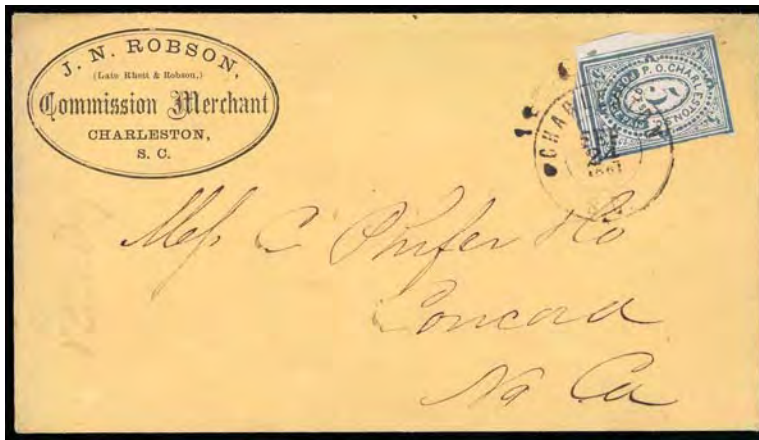 J. N. ROBSON,
(Late Rhett & Robson,)
Commission Merchant
CHARLESTON,
S. C.
P.O. CHARLESTON
5
1861
Mess C Phifer & Co
Concord
No Ca